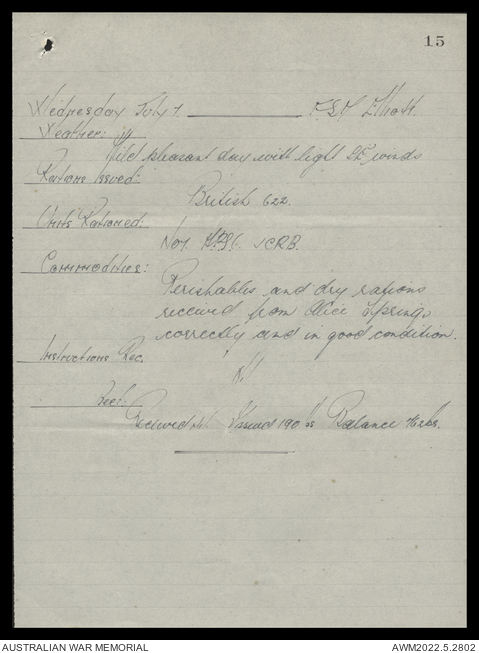 15
Wednesday July 7. F.S.D.
Weather:
Mild pleasant day with light S.E. winds
Rations Issued:
British 622.
Units Rationed:
No 1
Commodities:
Perishables and dry rations
received from Alice Springs
correctly and in good condition.
Instructions Rec.
Nil
Received Nil. Issued 190 Balance
AUSTRALIAN WAR MEMORIAL
AWM2022.5.2802